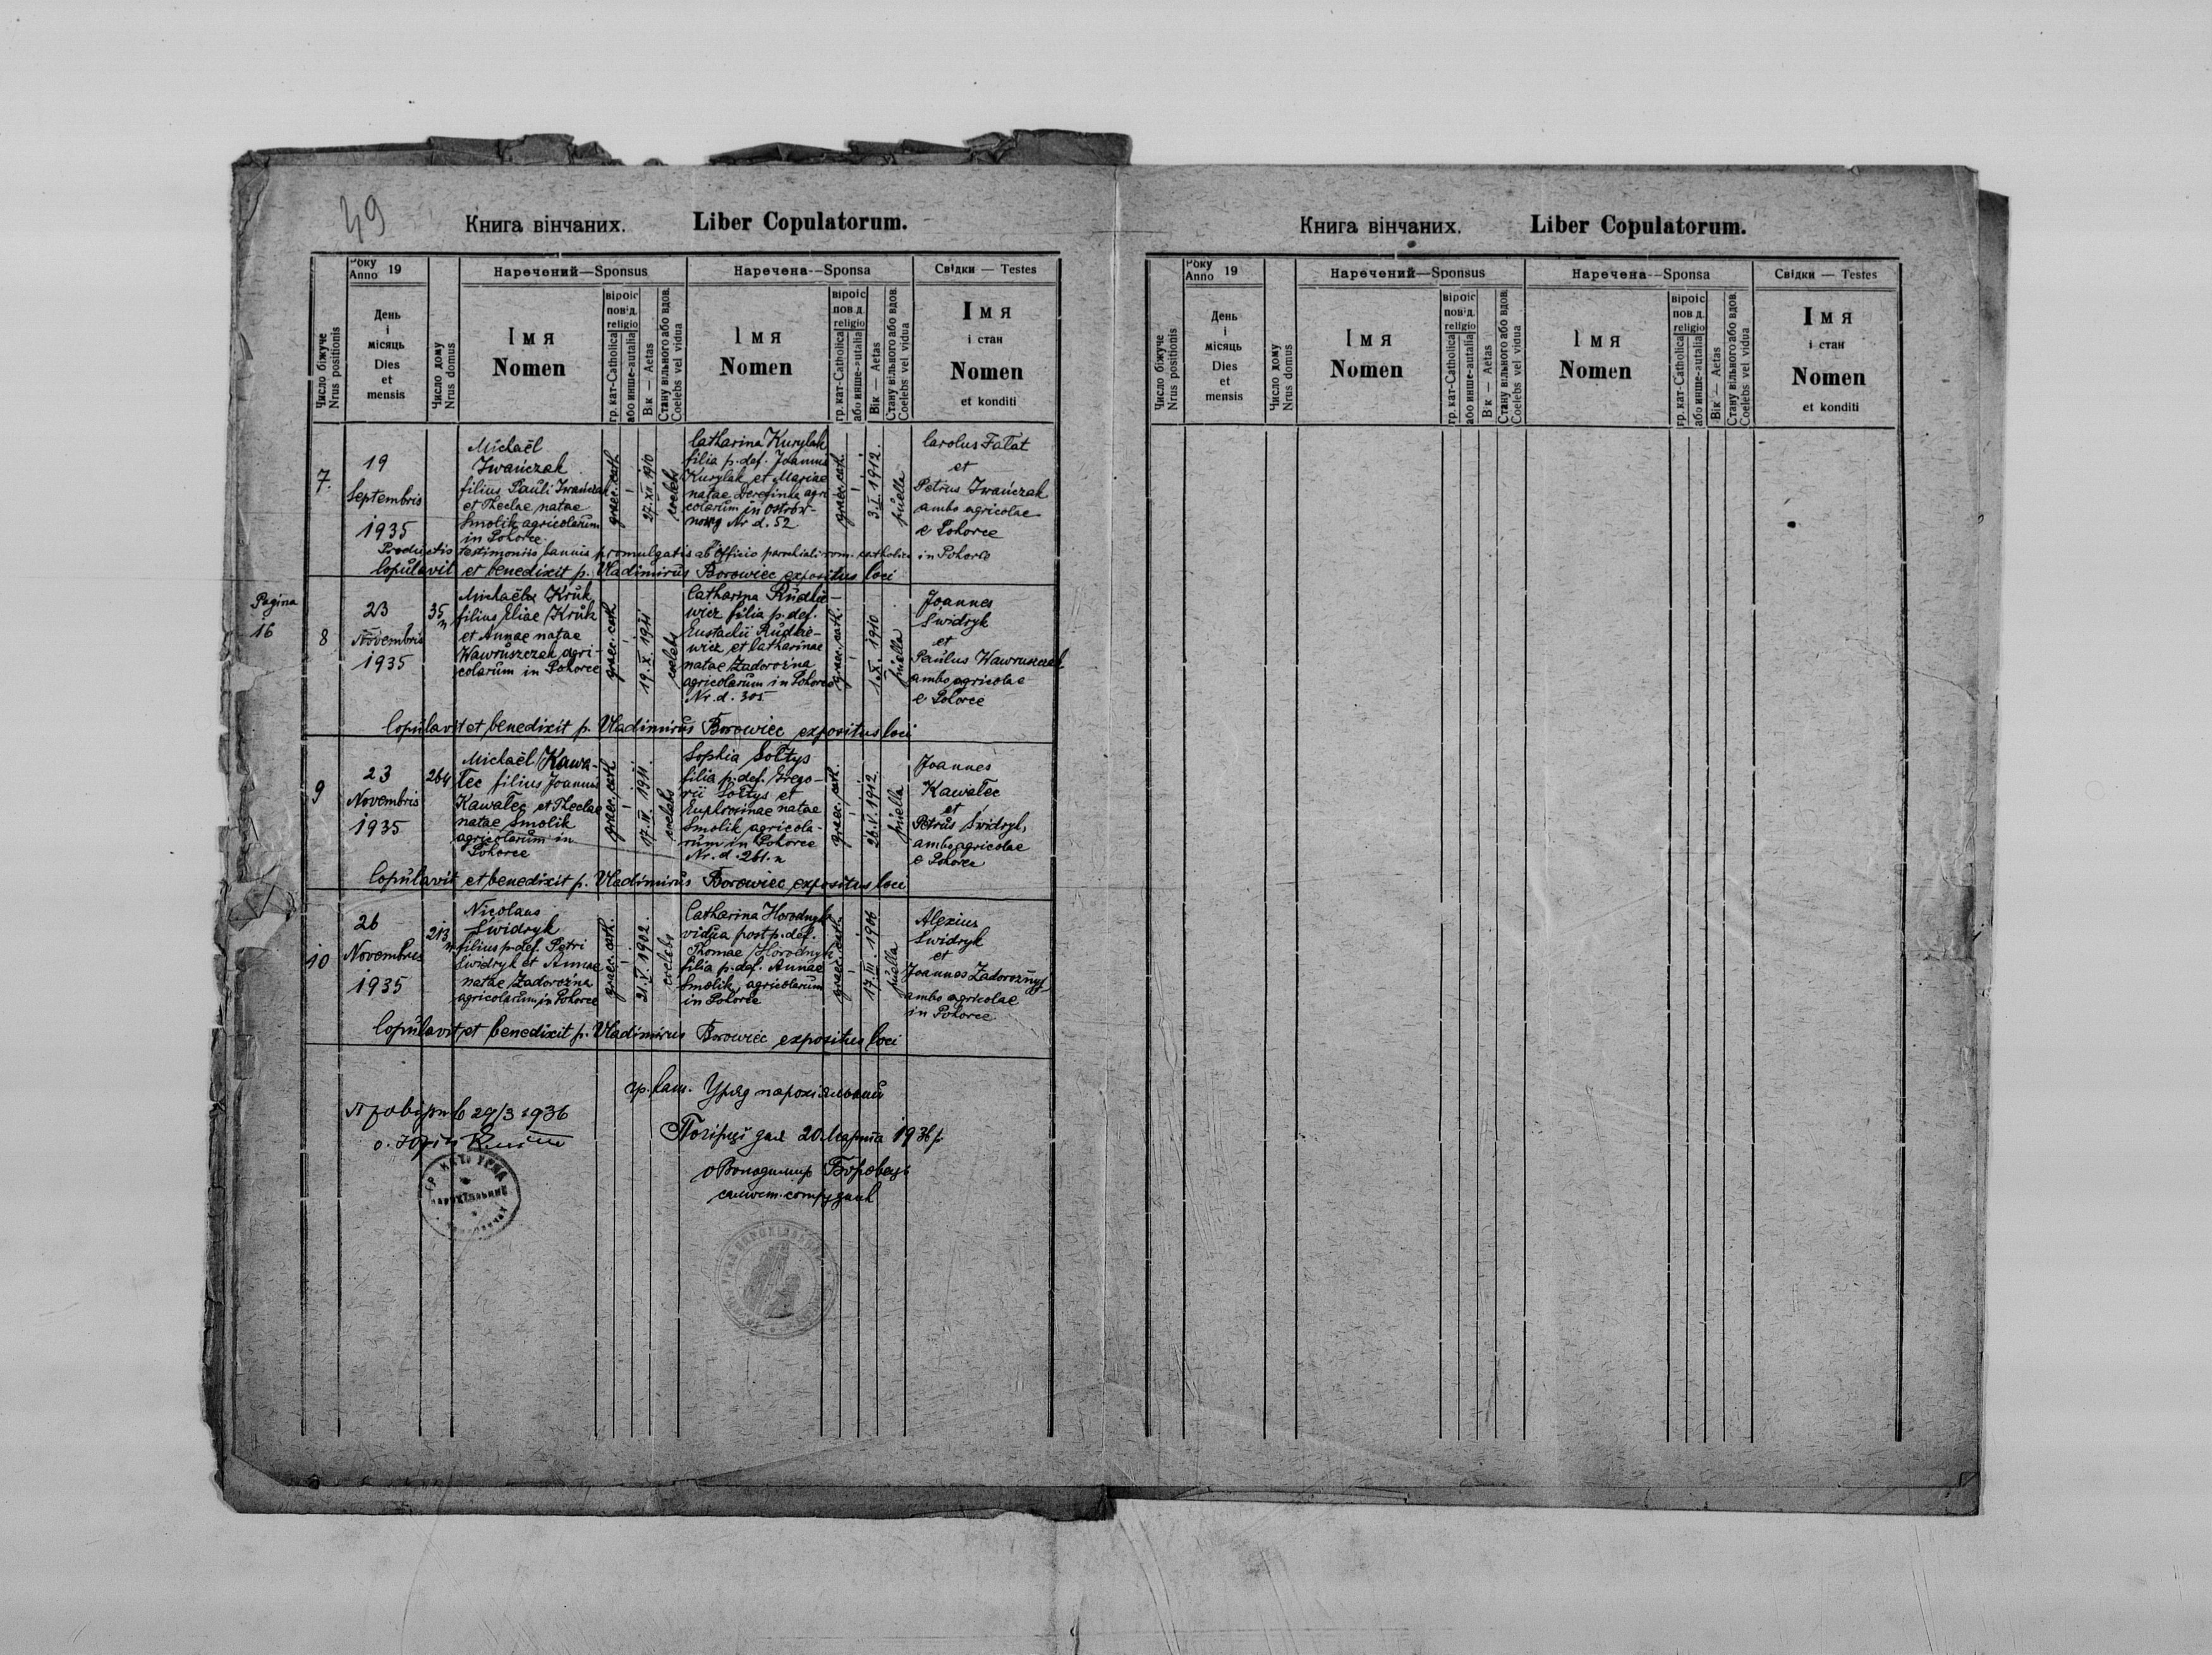 49
Книга вінчаних. Liber Copulatorum.
Число біжуче
Nrus positionis
Року
Anno 19
День
і
місяць
Dies
et
mensis
Число дому
Nrus domus
Наречений—Sponsus
Імя
Nomen
віроіс
пов д.
religio
гр. кат-Catholica
або инше-autalia
Вік — Aetas
Стану вільного або вдов.
Coelebs vel vidua
Наречена--Sponsa
Імя
Nomen
віроіс
пов д.
religio
гр. кат-Catholica
або инше-autalia
Вік — Aetas
Стану вільного або вдов.
Coelebs vel vidua
Свідки — Testes
Імя
і стан
Nomen
et konditi
7.
19
Septembris
1935
Michaël
Iwańczak
filius Pauli Iwańczak
et Theclae natae
Smolik agricolarum
in Pohorce.
graec. cath.
27. XI. 1910
coelebs
Catharina Kurylak
filia p. def. Joannis
Kurylak et Mariae
natae Derefinka agri
colarum in Ostrow-
Nr d. 52
graec. cath.
3. I. 1912.
puella
Carolus Fałat
et
Petrus Iwańczak
ambo agricolae
e Pohorce
in Pohorce
Productis testimoniis bannis promulgatis ab Officio parochiali rom. catholico
Copulavit et benedixit p. Vladimirus Borowiec expositus loci
Pagina
16
8
23
Novembris
1935
35
Michaël Kruk
filius Eliae Kruk
et Annae natae
Wawruszczak agri-
colarum in Pohorce
graec. cath
19. X. 1911
coelebs
Catharina Rudkie
wicz filia p. def.
Eustachii Rudkie-
wicz et Catharinae
natae Zadorożna
agricolarum in Pohorce
Nr. d. 305
graec. cath.
1. X. 1910
puella
Joannes
Świdryk
et
Paulus Wawruszczak
ambo agricolae
e Pohorce
Copulavit et benedixit p. Vladimirus Borowiec expositus loci
9
23
Novembris
1935
264
Michaël Kawa-
lec filius Joannis
Kawalec et Theclae
natae Smolik
agricolarum in
Pohorce
graec. cath
17. IV. 1911.
coelebs
Sophia Sołtys
filia p. def. Grego-
rii Sołtys et
Euphrosinae natae
Smolik agricola-
rum in Pohorce
Nr. d. 261. n
graec. cath.
26. V. 1912
puella
Joannes
Kawalec
et
Petrus Świdryk,
ambo agricolae
e Pohorce
Copulavit et benedixit p. Vladimirus Borowiec expositus loci
10
26
Novembris
1935
213
Nicolaus
Świdryk
filius p. def. Petri
Świdryk et Annae
natae Zadorożna
agricolarum in Pohorce
graec. cath.
21. V. 1902.
coelebs
Catharina Horodnyk
vidua post p. def.
Thomae Horodnyk
filia p. def. Annae
Smolik, agricolarum
in Pohorce
graec. cath.
17. III. 1906
puella
Alexius
Świdryk
et
Joannes Zadorożnyj
ambo agricolae
in Pohorce
Copulavit et benedixit p. Vladimirus Borowiec expositus loci
гр. кат. Уряд парохіяльний
Провірив 29/3 1936
о. Юрій
Погірці дня 20 Марта 1936 р.
о Володимир Боровець
самост. сотрудник
Книга вінчаних. Liber Copulatorum.
Число біжуче
Nrus positionis
Року
Anno 19
День
і
місяць
Dies
et
mensis
Число дому
Nrus domus
Наречений—Sponsus
Імя
Nomen
віроіс
пов д.
religio
гр. кат-Catholica
або инше-autalia
Вік — Aetas
Стану вільного або вдов.
Coelebs vel vidua
Наречена--Sponsa
Імя
Nomen
віроіс
пов д.
religio
гр. кат-Catholica
або инше-autalia
Вік — Aetas
Стану вільного або вдов.
Coelebs vel vidua
Свідки — Testes
Імя
і стан
Nomen
et konditi